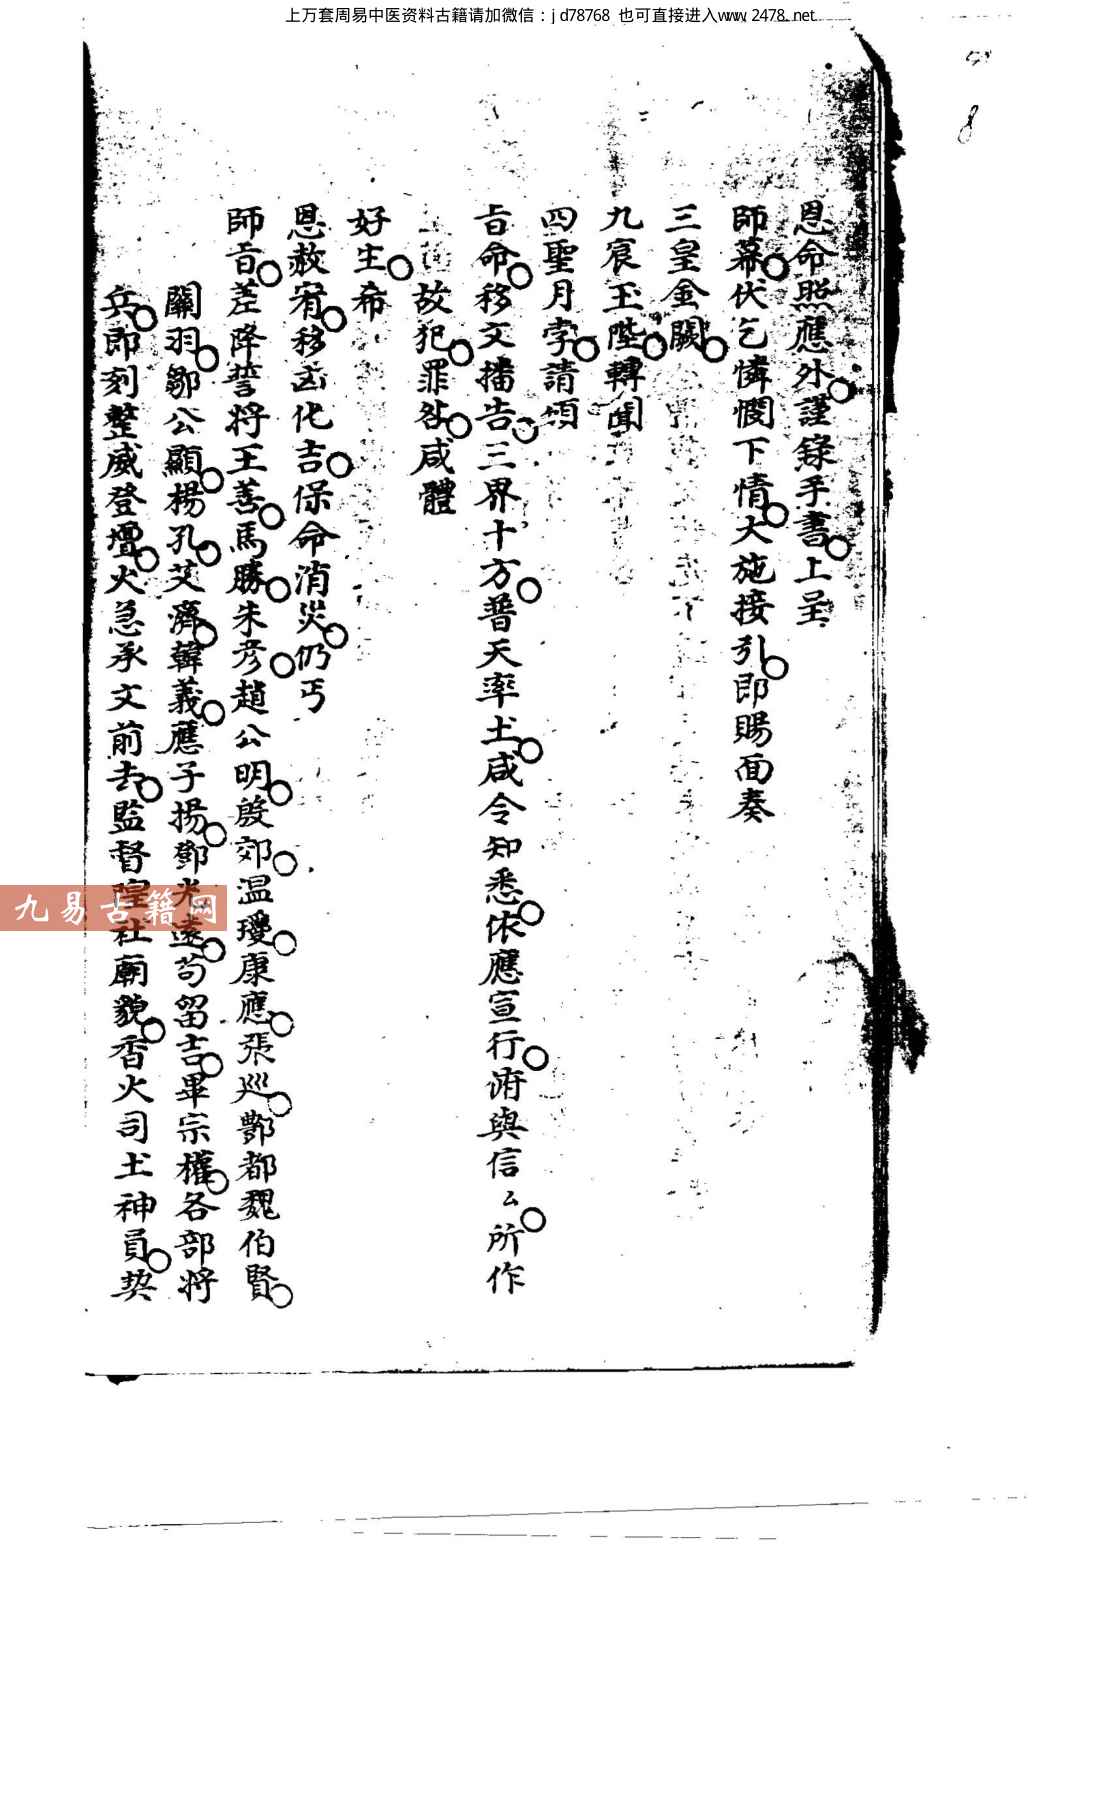 上万套周易中医资料古籍请加微信：jd78768 也可直接进入www.2478.net
8
恩命照應外○謹錄手書○上呈
師幕○伏乞憐憫下情○大施接引○即賜面奏
三皇金闕○
九宸玉陛○轉聞
四聖月孛○請頒
旨命○移文播告○三界十方○普天率土○咸令知悉○依應宣行○淯與信々○所作
故犯○罪咎○咸體
好生○希
恩赦宥○移凶化吉○保命消災○仍丐
師旨○差降誓将王善○馬勝○朱彥○趙公明○殷郊○温瓊○康應○張巡○酆都魏伯賢○
關羽○鄒公顯○楊孔○艾濟○韓義○應子揚○鄧光遠○苟留吉○畢宗權○各部将
兵○即刻整威登壇○火急承文前去○監督隍社廟貌○香火司土神員○契
九易古籍网